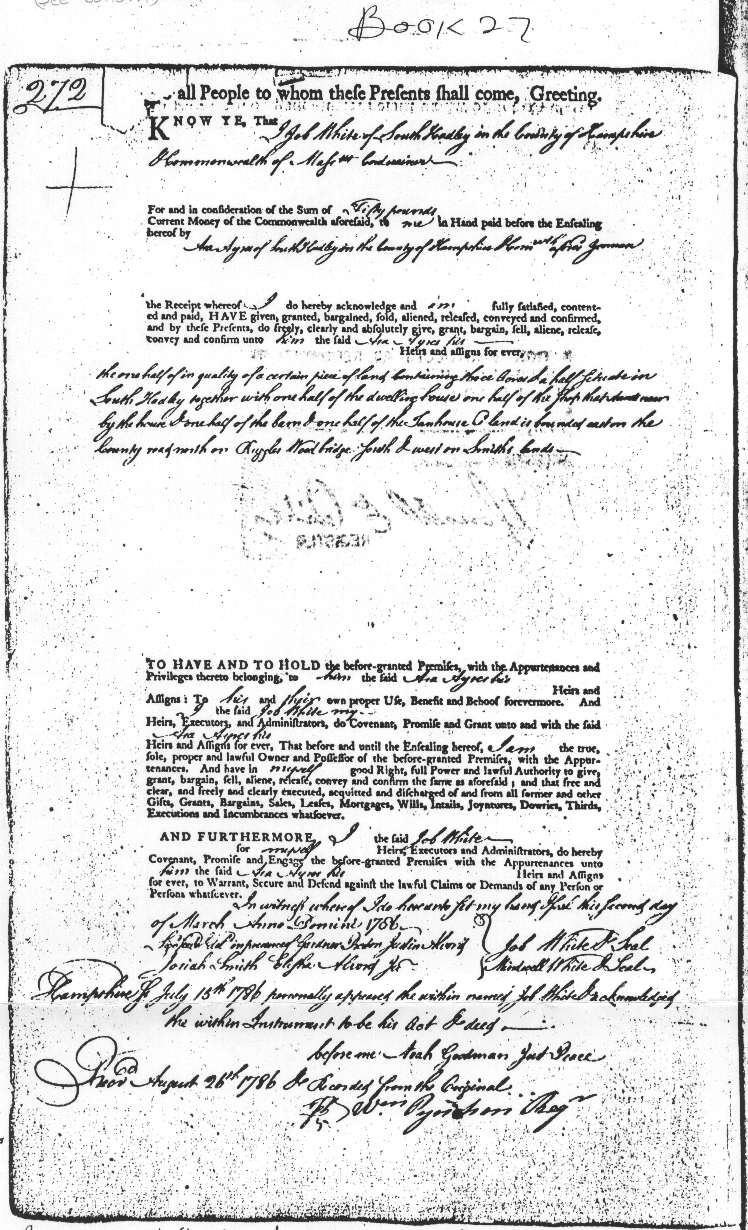 BOOK 27
272
all People to whom these Presents shall come, Greeting.
KNOW YE, That I Job White of South Hadley in the County of Hampshire
& Commonwealth of Massts Cordwainer
For and in consideration of the Sum of Fifty pounds
Current Money of the Commonwealth aforesaid, to me in Hand paid before the Ensealing
hereof by
Asa Ayres of South Hadley in the County of Hampshire & Comwlth afores Yeoman
the Receipt whereof I do hereby acknowledge and am fully satisfied, content-
ed and paid, HAVE given, granted, bargained, sold, aliened, released, conveyed and confirmed,
and by these Presents, do freely, clearly and absolutely give, grant, bargain, sell, aliene, release,
convey and confirm unto him the said Asa Ayres his
Heirs and assigns for ever,
the one half of in quality of a certain piece of land Containing three acres & a half Situate in
South Hadley together with one half of the dwelling house one half of the Shop that stands near
by the house & one half of the barn & one half of the Tanhouse land is bounded east on the
County road north on Ruggles Woodbridge South & west on Smiths lands
REGISTER
TO HAVE AND TO HOLD the before-granted Premises, with the Appurtenances and
Privileges thereto belonging, to him the said Asa Ayres his
Heirs and
Assigns: To his and their own proper Use, Benefit and Behoof forevermore. And
I the said Job White my
Heirs, Executors, and Administrators, do Covenant, Promise and Grant unto and with the said
Asa Ayres his
Heirs and Assigns for ever, That before and until the Ensealing hereof, I am the true,
sole, proper and lawful Owner and Possessor of the before-granted Premises, with the Appur-
tenances. And have in myself good Right, full Power and lawful Authority to give,
grant, bargain, sell, aliene, release, convey and confirm the same as aforesaid; and that free and
clear, and freely and clearly executed, acquitted and discharged of and from all former and other
Gifts, Grants, Bargains, Sales, Leases, Mortgages, Wills, Intails, Joyntures, Dowries, Thirds,
Executions and Incumbrances whatsoever.
AND FURTHERMORE, I the said Job White
for myself Heirs, Executors and Administrators, do hereby
Covenant, Promise and Engage the before-granted Premises with the Appurtenances unto
him the said Asa Ayres his Heirs and Assigns
for ever, to Warrant, Secure and Defend against the lawful Claims or Demands of any Person or
Persons whatsoever.
In witness whereof I do hereunto set my hand & seal this second day
of March Anno Domini 1786
Signed in presence of Gardner Preston Justin Alvord Job White & Seal
Josiah Smith Elisha Alvord Jr Mindwell White & Seal
Hampshire Ss July 15th 1786 personally appeared the within named Job White & acknowledged
the within Instrument to be his Act & deed
before me Noah Goodman Just Peace
Recd August 26th 1786 & Recorded from the Original
Wm Pynchon Regr